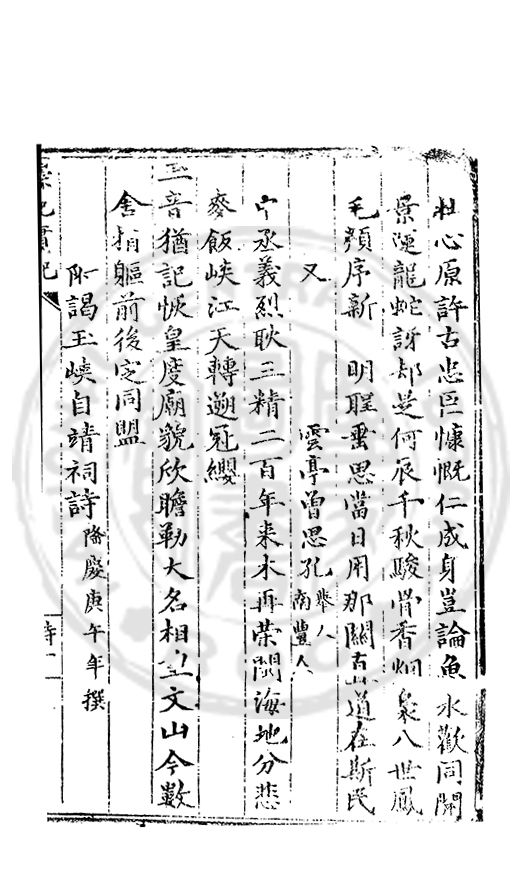 壯心原許古忠臣慷慨仁成身豈論魚水歡同開
景陵龍蛇訝却是何辰千秋駿骨香烟裊八世鳳
毛顏序新 明聖重思當日用那關直道在斯民
又 雲亭曾思孔舉人南豐人
中丞義烈耿三精二百年來木再榮關海地分悲
麥飯峽江天轉遡冠纓
玉音猶記恢皇度廟貌欣瞻勒大名相望文山今數
舍捐軀前後定同盟
附謁玉峽自靖祠詩 隆慶庚午年撰